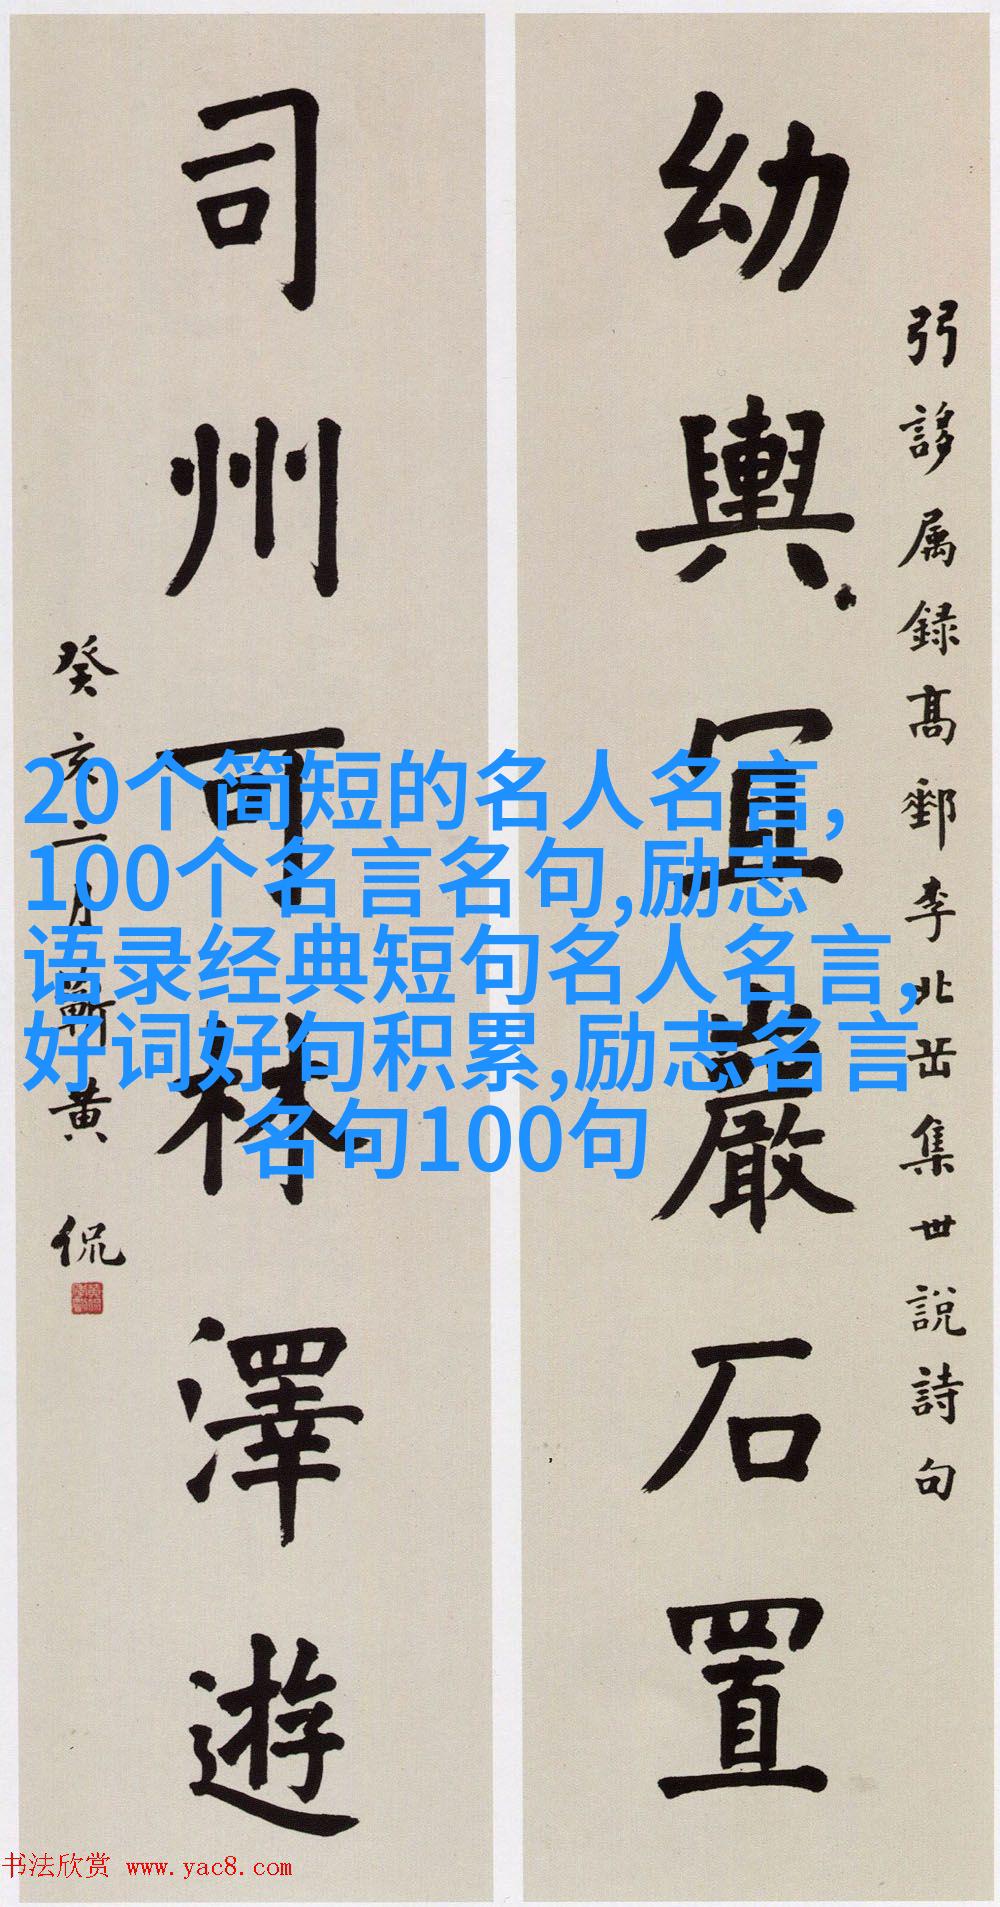 弜誃属録高郵李北岳集世説詩句
幼輿宜巖石置
司州可林澤遊
癸亥二月蘄黄侃
20个简短的名人名言,
100个名言名句,励志
语录经典短句名人名言,
好词好句积累,励志名言
名句100句
书法欣赏 www.yac8.com